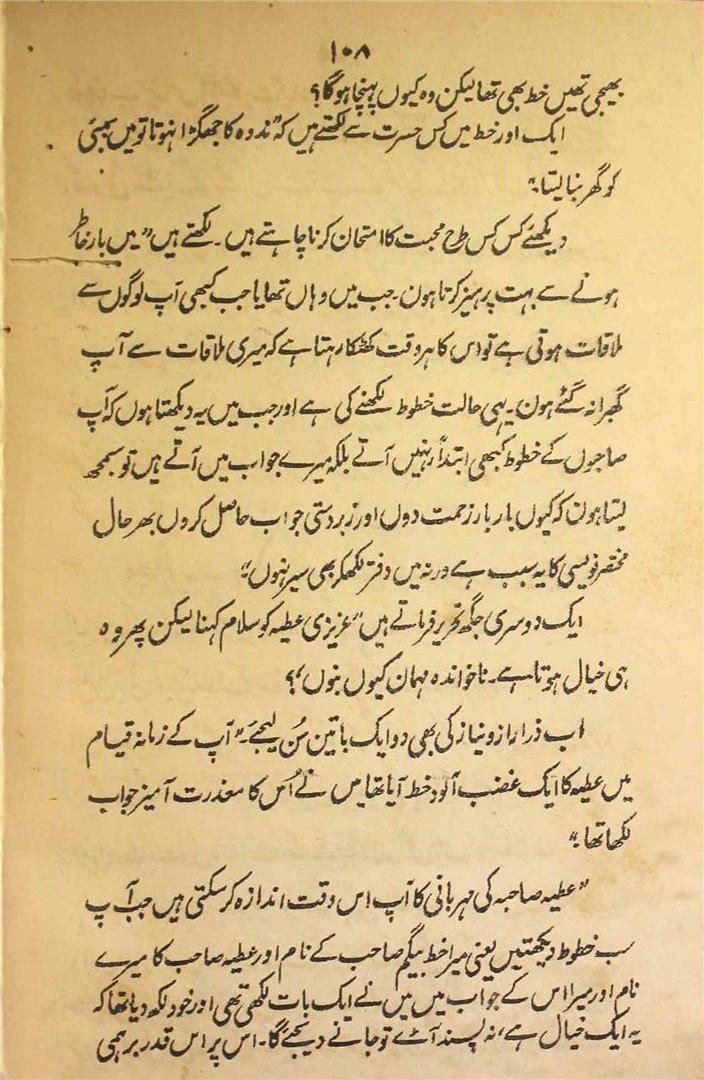 ۱۰۸
بھیجی تھیں خط بھی تھا لیکن وہ کیوں پہنچا ہوگا؟
ایک اور خط میں کس حسرت سے لکھتے ہیں کہ "ندوہ کا جھگڑا نہوتا تو میں بمبئی
کو گھر بنا لیتا"۔
دیکھئے کس کس طرح محبت کا امتحان کرنا چاہتے ہیں۔ لکھتے ہیں "میں بار خاطر
ہونے سے بہت پرہیز کرتا ہون۔ جب میں وہاں تھا یا جب کبھی آپ لوگوں سے
ملاقات ہوتی ہے تو اس کا ہر وقت کھٹکا رہتا ہے کہ میری ملاقات سے آپ
گھبرا نہ گئے ہون۔ یہی حالت خطوط لکھنے کی ہے اور جب میں یہ دیکھتا ہوں کہ آپ
صاحبوں کے خطوط کبھی ابتداً نہیں آتے بلکہ میرے جواب میں آتے ہیں تو سمجھ
لیتا ہون کہ کیوں بار بار زحمت دوں اور زبردستی جواب حاصل کروں بہر حال
مختصر نویسی کا یہ سبب ہے ورنہ میں دفتر لکھکر بھی سیر نہوں"۔
ایک دوسری جگھ تحریر فرماتے ہیں "عزیزی عطیہ کو سلام کہنا لیکن پھر وہ
ہی خیال ہوتا ہے۔ ناخواندہ مہمان کیوں بنوں"؟
اب ذرا راز و نیاز کی بھی دو ایک باتین سُن لیجئے۔ "آپ کے زمانہ قیام
میں عطیہ کا ایک غضب آلود خط آیا تھا میں نے اُس کا معذرت آمیز جواب
لکھا تھا۔"
"عطیہ صاحبہ کی مہربانی کا آپ اس وقت اندازہ کر سکتی ہیں جب آپ
سب خطوط دیکھتیں یعنی میرا خط بیگم صاحب کے نام اور عطیہ صاحب کا میرے
نام اور میرا اس کے جواب میں میں نے ایک بات لکھی تھی اور خود لکھ دیا تھا کہ
یہ ایک خیال ہے، نہ پسند آئے تو جانے دیجئے گا۔ اس پر اس قدر برہمی